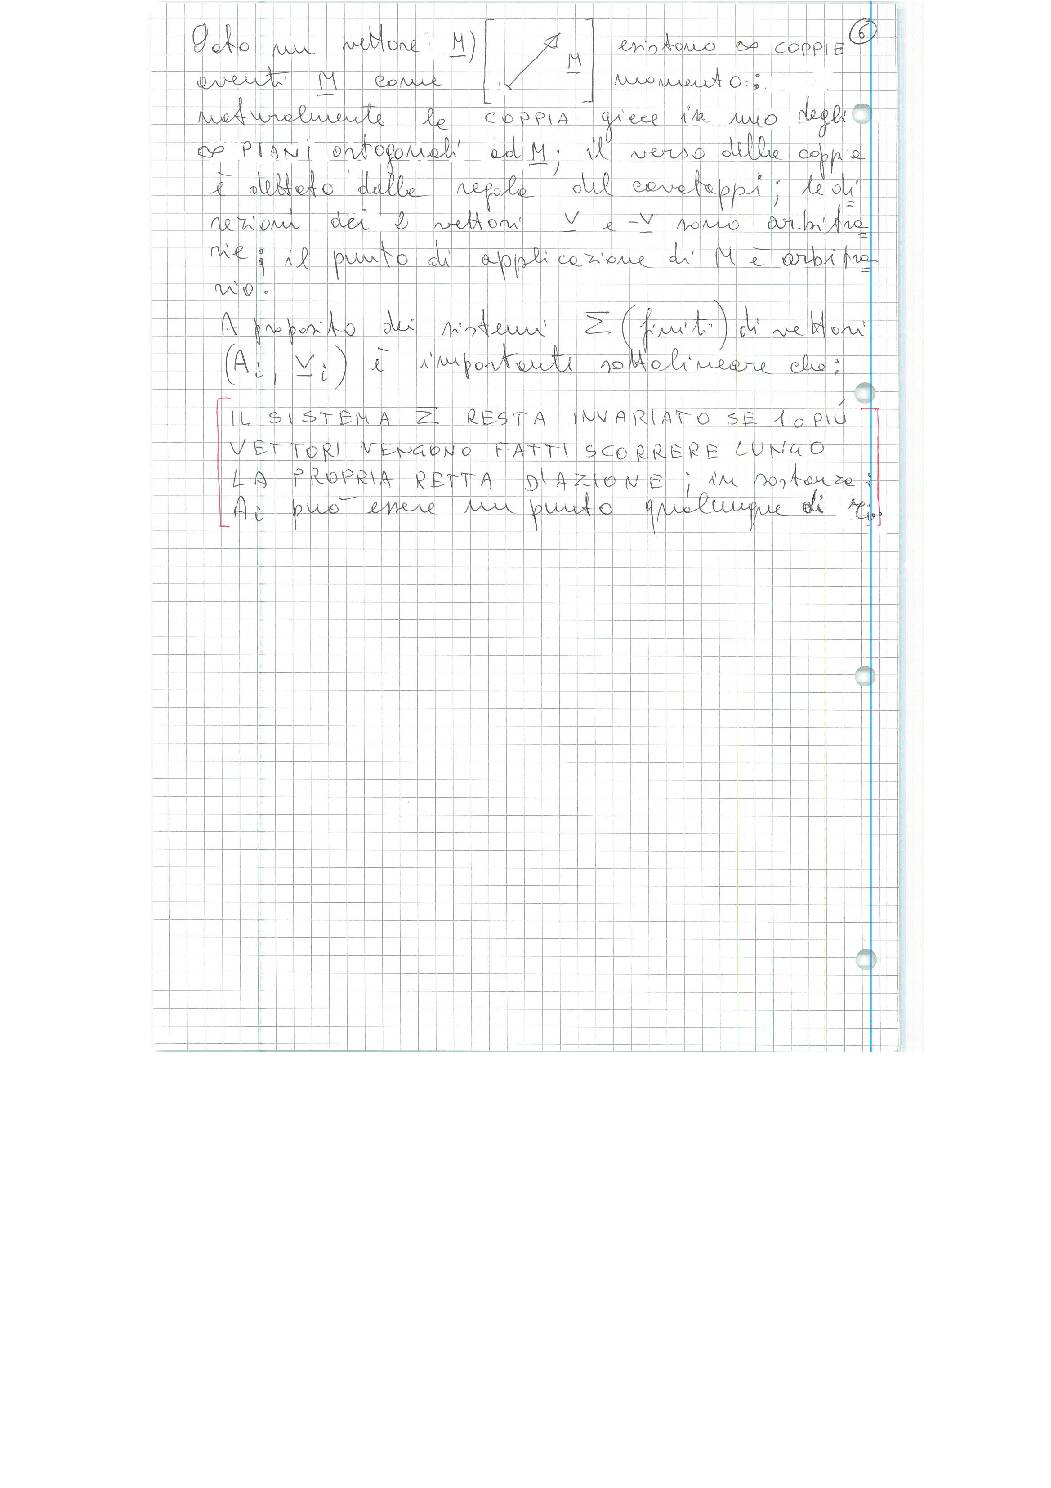 Dato un vettore M) [ M ] esistono ∞ COPPIE 6
aventi M come momento:
naturalmente la COPPIA giace in uno degli
∞ PIANI ortogonali ad M; il verso della coppia
è dettato dalla regola del cavatappi; le di
rezioni dei 2 vettori v e -v sono arbitra
rie; il punto di applicazione di M è arbitra
rio.
A proposito dei sistemi Σ (finiti) di vettori
(Ai, vi) è importante sottolineare che:
IL SISTEMA Σ RESTA INVARIATO SE 1 o PIÚ
VETTORI VENGONO FATTI SCORRERE LUNGO
LA PROPRIA RETTA D'AZIONE; in sostanza:
Ai può essere un punto qualunque di ri.